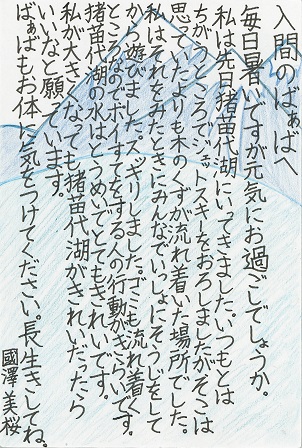 入間のばぁばへ
毎日暑いですが元気にお過ごしでしょうか。
私は先日猪苗代湖にいってきました。いつもとは
ちがうところでジェットスキーをおろしましたがそこは
思っていたよりも木のくずが流れ着いた場所でした。
私はそれをみたときにみんなでいっしょにそうじをして
から遊びました。スッキリしました。ゴミも流れ着く
ところなのでポイすてをする人の行動がきらいです。
猪苗代湖の水はとうめいでとてもきれいです。
私が大きくなっても猪苗代湖がきれいだったら
いいなと願っています。
ばぁばもお体に気をつけてください。長生きしてね。
國澤 美桜